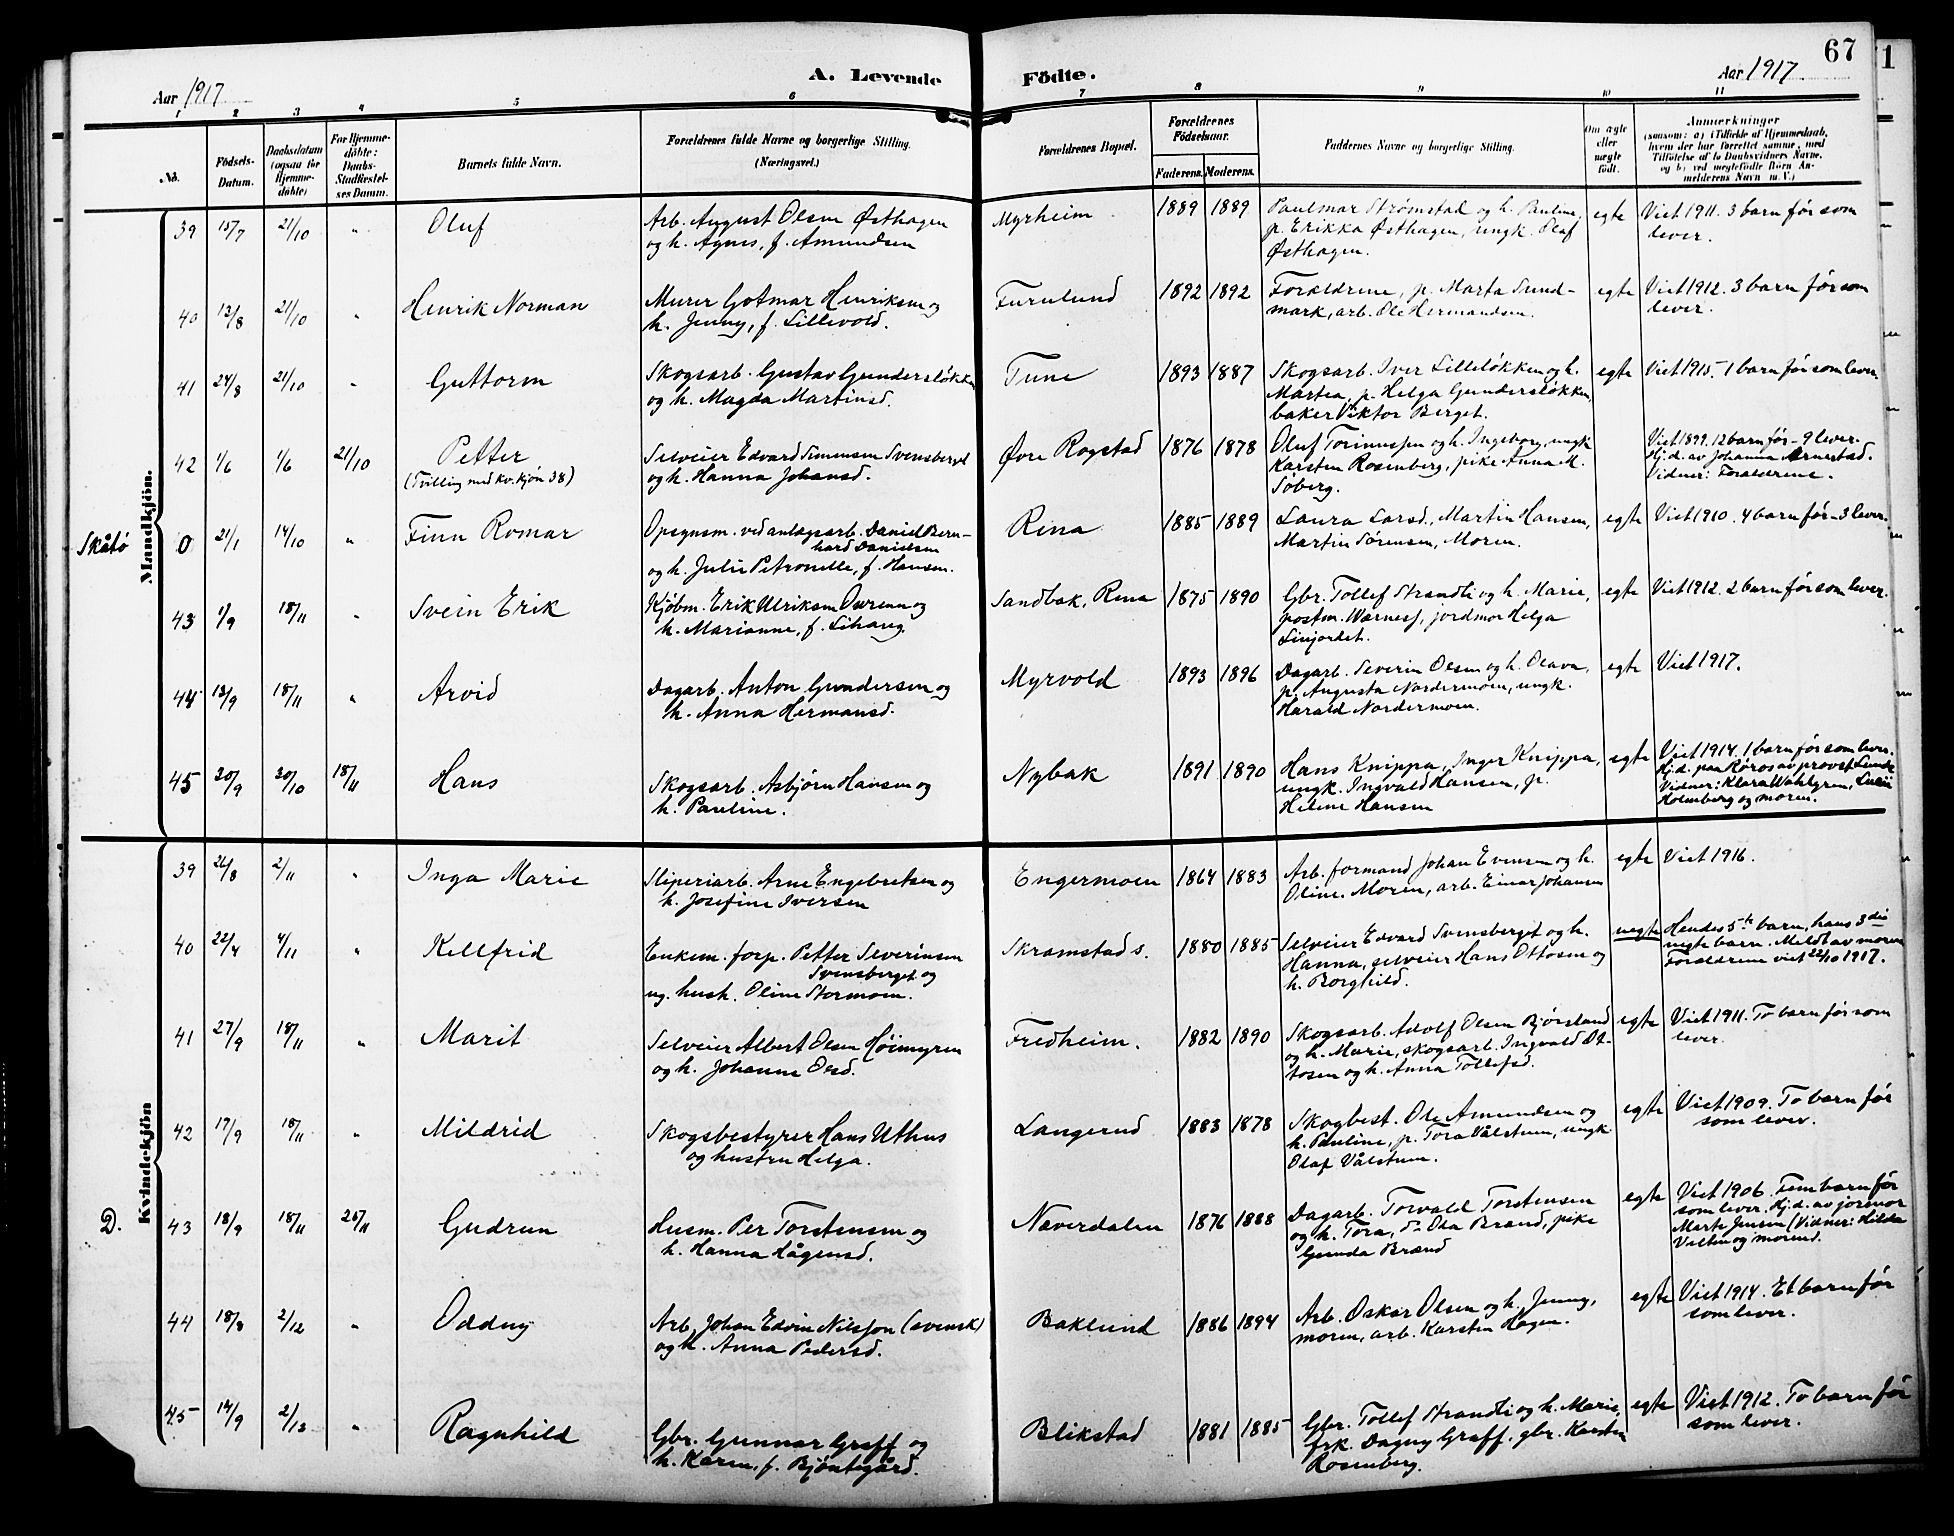 67
Aar 1917
A. Levende Födte.
Aar 1917
1 2 3 4 5 6 7 8 9 10 11
No.
Födsels-Datum.
Daabsdatum (ogsaa for Hjemmedöbte)
For Hjemmedöbte: Daabs-Stadfæstelses Datum.
Barnets fulde Navn.
Forældrenes fulde Navne og borgerlige Stilling. (Næringsvei.)
Forældrenes Bopæl.
Forældrenes Födselsaar.
Faderens. Moderens.
Faddernes Navne og borgerlige Stilling.
Om ægte eller uægte födt.
Anmærkninger
(saasom: a) i Tilfælde af Hjemmedaab, hvem der har forrettet samme, med Tilföielse af to Daabsvidners Navne, og b) ved uægtefödte Börn Anmelderens Navn m. V.)
Mandkjön.
39 15/7 21/10 " Oluf
Arb. August Olsen Østhagen
og h. Agnes, f. Amundsen
Myrheim 1889 1889
Paulmar Strømstad og h. Pauline,
p. Erikka Østhagen, ungk. Olaf
Østhagen.
egte
Viet 1911. 3 barn før som
lever.
40 12/8 21/10 " Henrik Norman
Murer Gotmar Henriksen og
h. Jenny, f. Lillevold.
Furulund 1892 1892
Forældrene, p. Marta Sund-
mark, arb. Ole Hermandsen.
egte
Viet 1912. 3 barn før som
lever.
41 24/8 21/10 " Guttorm
Skogsarb. Gustav Gundersløkken
og h. Magda Martinsd.
Tune 1893 1887
Skogsarb. Iver Lilleløkken og h.
Martea, p. Helga Gundersløkken,
baker Viktor Berget.
egte
Viet 1915. 1 barn før som lever
42 1/6 1/6 21/10 Petter
(Tvilling med kv.kjøn 38)
Selveier Edvard Simensen Svensberget
og h. Hanna Johansd.
Øvre Rogstad 1876 1878
Oluf og h. Ingeborg, ungk.
Karsten Rosenberg, pike Anna M.
Søberg.
Viet 1899. 12 barn før - 9 lever.
Hj.d. av Johanna Arnestad.
Vidner: Forældrene.
Skåtø
0 21/1 14/10 " Finn Romar
Opsynsm. ved anlægsarb. Daniel Bern-
hard Danielsen
og h. Julie Petronelle, f. Hansen.
Rena 1885 1889
Laura Larsd., Martin Hansen,
Martin Sørensen, Moren.
egte
Viet 1910. 4 barn før - 3 lever.
43 1/9 18/11 " Svein Erik
Kjøbm. Erik Ulriksen Ourenn og
h. Marianne, f. Lihaug.
Sandbak, Rena 1875 1890
Gbr. Tollef Strandli og h. Marie,
postm. Wærness, jordmor Helga
Linjordet.
egte
Viet 1912. 2 barn før som lever.
44 13/9 18/11 " Arvid
Dagarb. Anton Gundersen og
h. Anna Hermansd.
Myrvold 1893 1896
Dagarb. Severin Olsen og h. Olava,
p. Augusta Nordermoen, ungk.
Harald Nordermoen.
egte
Viet 1917.
45 20/9 30/10 18/11 Hans
Skogsarb. Asbjørn Hansen og
h. Pauline.
Nybak 1891 1890
Hans Knippa, Inger Knippa,
ungk. Ingvald Hansen, p.
Helene Hansen
egte
Viet 1914. 1 barn før som lever.
Hj.d. paa Røros av provst Lunde
Vidner: Klara Wahlgren,
Holmberg og moren.
Kvindekjön
39 26/8 2/11 " Inga Marie
Sliperiarb. Arne Engebretsen og
h. Josefine Iversen
Engermoen 1864 1883
Arb. formand Johan Evensen og h.
Oline. Moren, arb. Einar Johansen
egte
Viet 1916.
40 22/4 4/11 " Kellfrid
Enkem. forp. Petter Severinsen
Svensberget og
ug. hush. Oline Stormoen.
Skramstad s. 1880 1885
Selveier Edvard Svensberget og h.
Hanna, selveier Hans Ottosen og
h. Borghild.
uegte
Hendes 5te barn, hans 3die
uegte barn. Meldt av moren
Forældrene viet 22/10 1917.
41 27/9 18/11 " Marit
Selveier Albert Olsen Höimyren
og h. Johanne Olsd.
Fredheim. 1882 1890
Skogsarb. Adolf Olsen Bjørsland
og h. Marie, skogsarb. Ingvald Ot-
tosen og h. Anna Tollefsd.
egte
Viet 1911. To barn før som
lever.
42 17/9 18/11 " Mildrid
Skogsbestyrer Hans Uthus
og hustru Helga.
Langerud 1883 1878
Skogbest. Ole Amundsen og
h. Pauline, p. Tora Vålstuen, ungk
Olaf Vålstuen.
egte
Viet 1909. To barn før
som lever.
D.
43 18/9 18/11 25/11 Gudrun
Husm. Per Torstensen og
h. Hanna Hågensd.
Næverdalen 1876 1888
Dagarb. Torvald Torstensen
og h. Tora, Ola Brænd, pike
Gunda Brænd
egte
Viet 1906. Fem barn før
som lever. Hj.d. av jormor
Marte Jensen (Vidner: Hilda
Velten og moren).
44 18/8 2/12 " Oddny
Arb. Johan Edvin Nilsson (svensk)
og h. Anna Pedersd.
Baklund 1886 1894
Arb. Oskar Olsen og h. Jenny,
moren, arb. Karsten Hagen.
egte
Viet 1914. Et barn før
som lever.
45 14/9 2/12 " Ragnhild
Gbr. Gunnar Graff og
h. Karen, f. Bjøntegård.
Blikstad 1881 1885
Gbr. Tollef Strandli og h. Marie
frk. Dagny Graff, gbr. Karsten
Rosenberg.
egte
Viet 1912. To barn før
som lever.